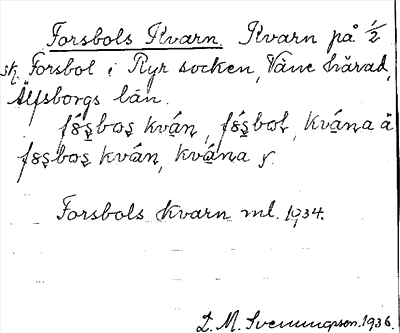 Forsbols Kvarn. Kvarn på 1/2
sk. Forsbol i Ryr socken, Väne härad,
Älfsborgs län.
kván, kvána å
kván, kvána
Forsbols Kvarn ml. 1934.
D. M. Svenungsson. 1936.